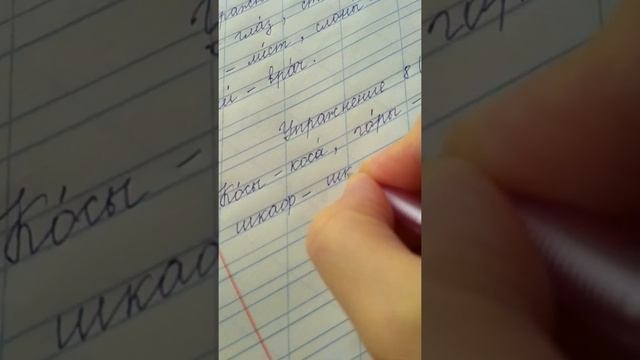 гла́з,
– ли́ст, слоны
– вра́ч.
Упражнение 8
Ко́сы – коса́, го́ры –
шкаф – шк